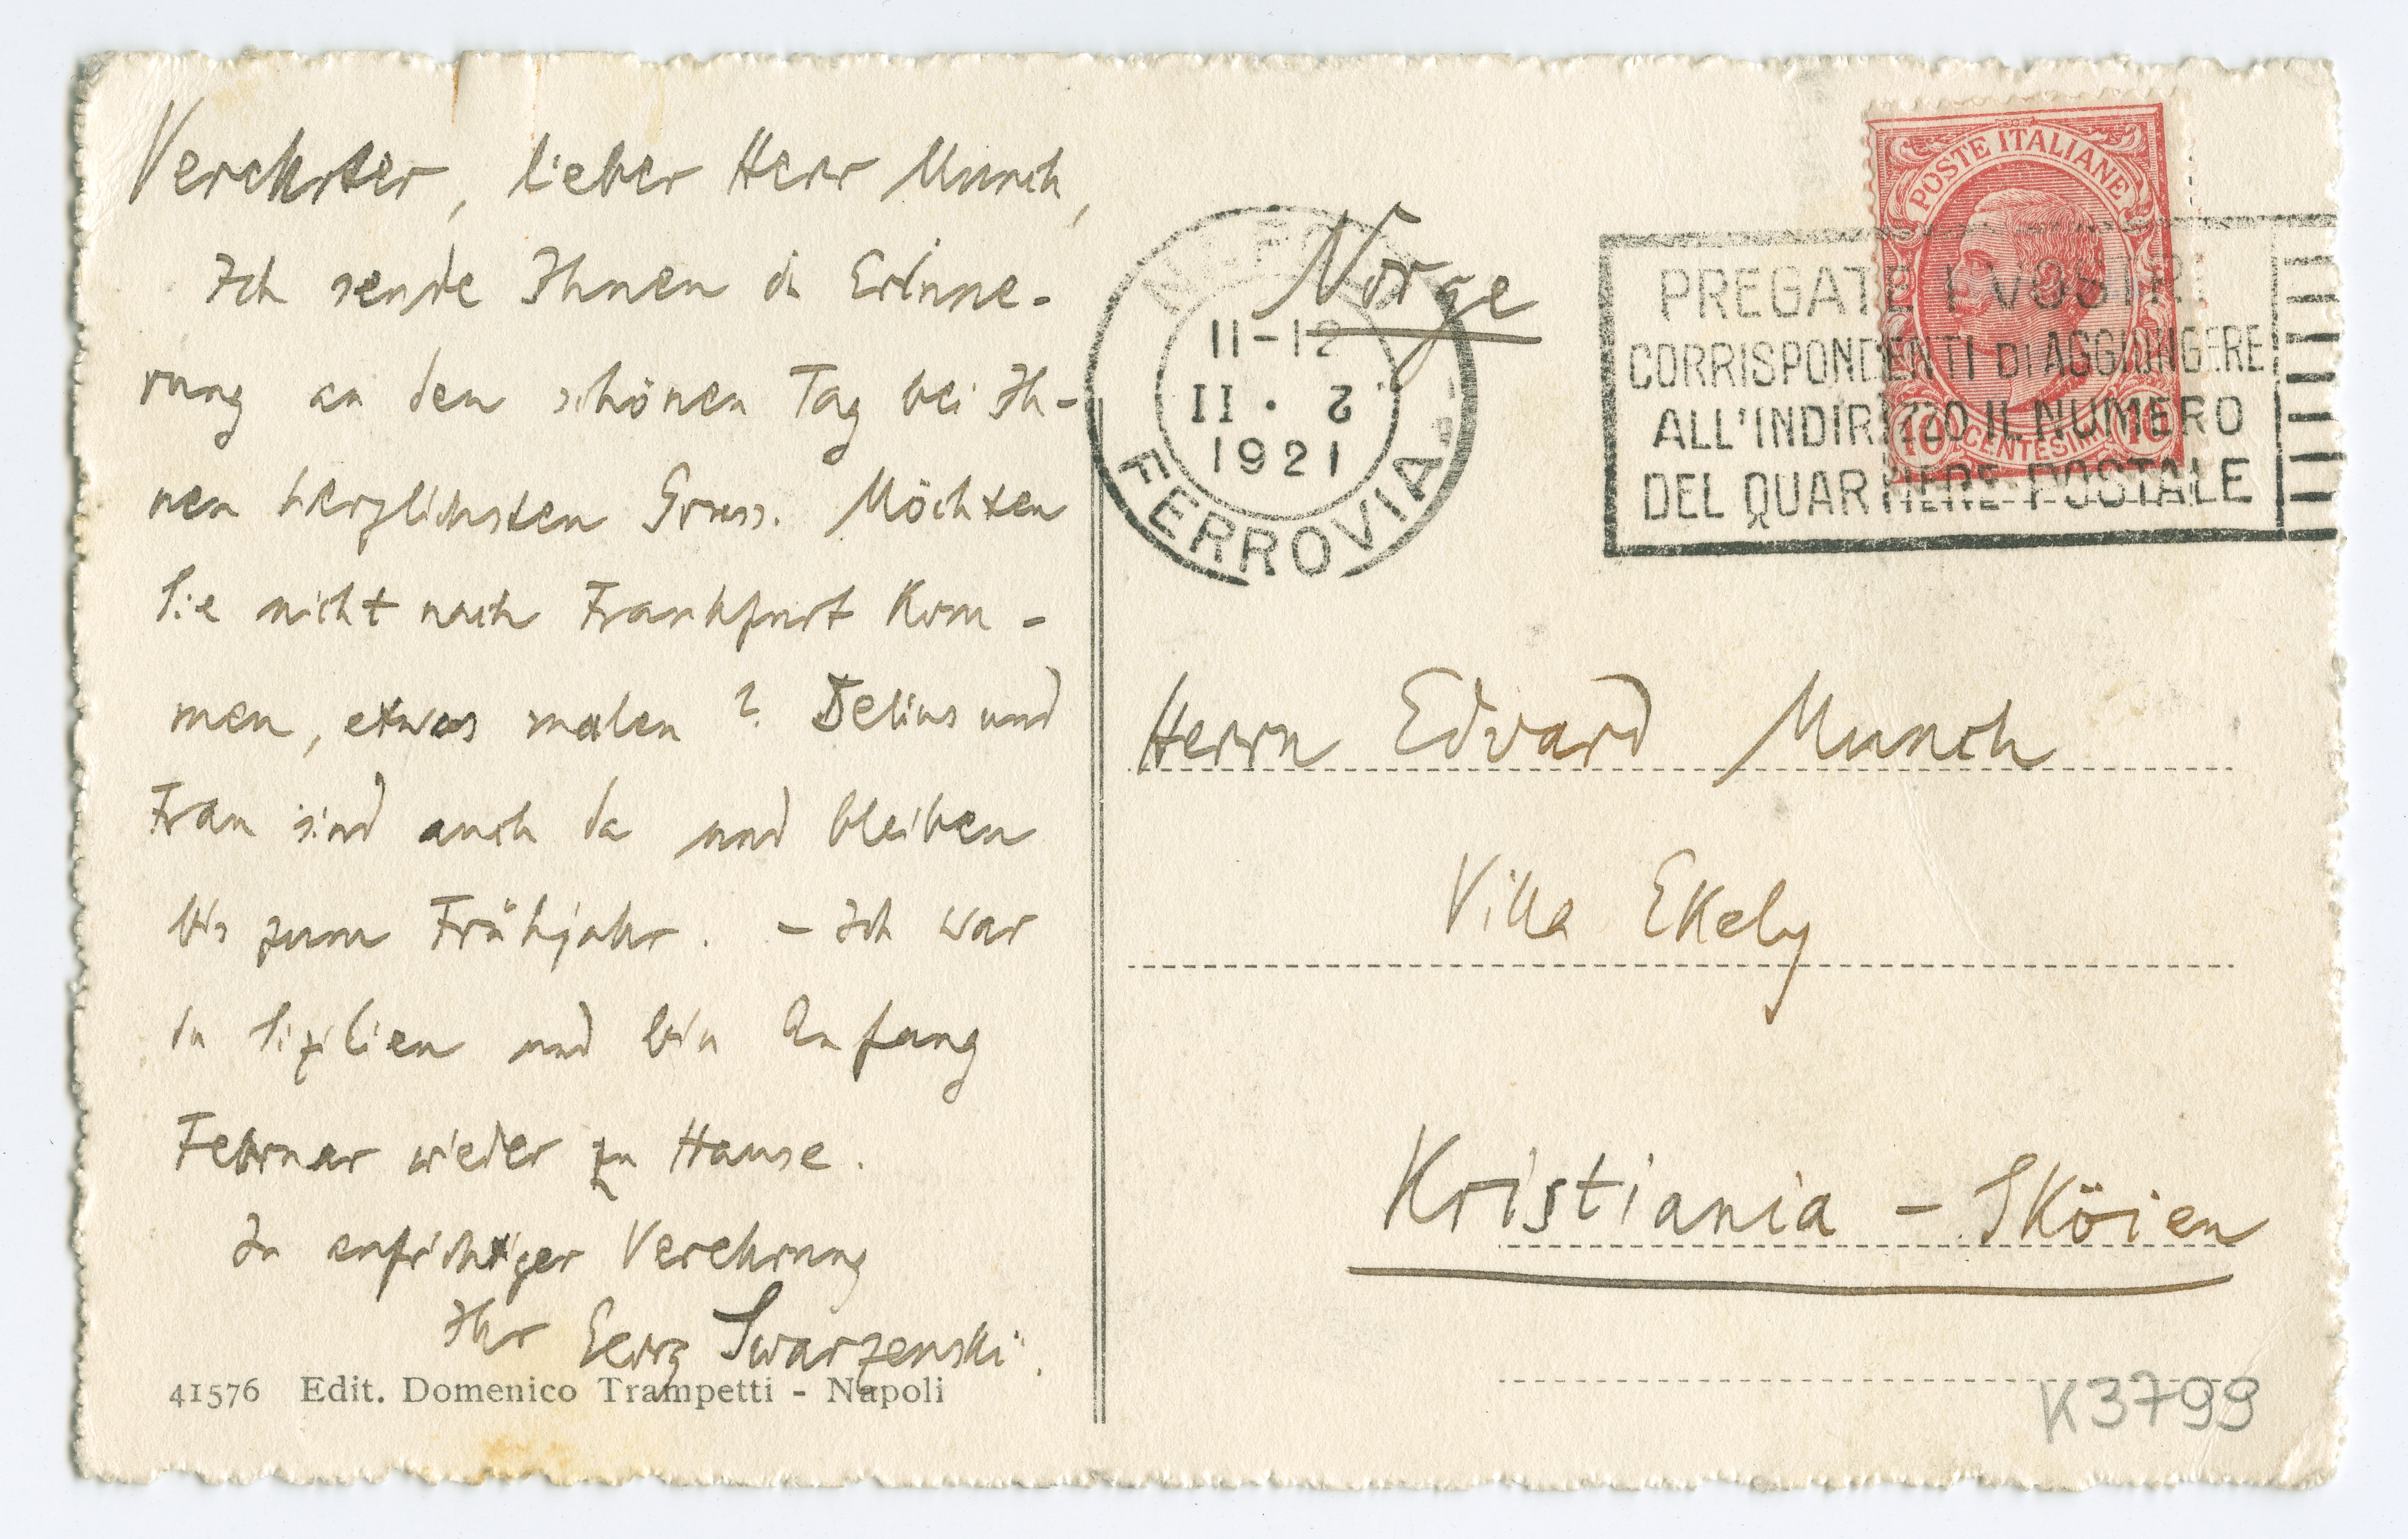 Verehrter, lieber Herr Munch,
Ich sende Ihnen in Erinne-
rung an den schönen Tag bei Ih-
nen herzlichsten Gruss. Möchten
Sie nicht nach Frankfurt kom-
men, etwas malen? Delius und
Frau sind auch da und bleiben
bis zum Frühjahr. – Ich war
in Sizilien und bin Anfang
Februar wieder zu Hause.
In aufrichtiger Verehrung
Ihr Georg Swarzenski.
41576 Edit. Domenico Trampetti - Napoli
Norge
NAPOLI
11-12
II · 2
1921
FERROVIA
POSTE ITALIANE
10 CENTESIMI 10
PREGATE I VOSTRI
CORRISPONDENTI DI AGGIUNGERE
ALL'INDIRIZZO IL NUMERO
DEL QUARTIERE POSTALE
Herrn Edvard Munch
Villa Ekely
Kristiania – Sköien
K3799